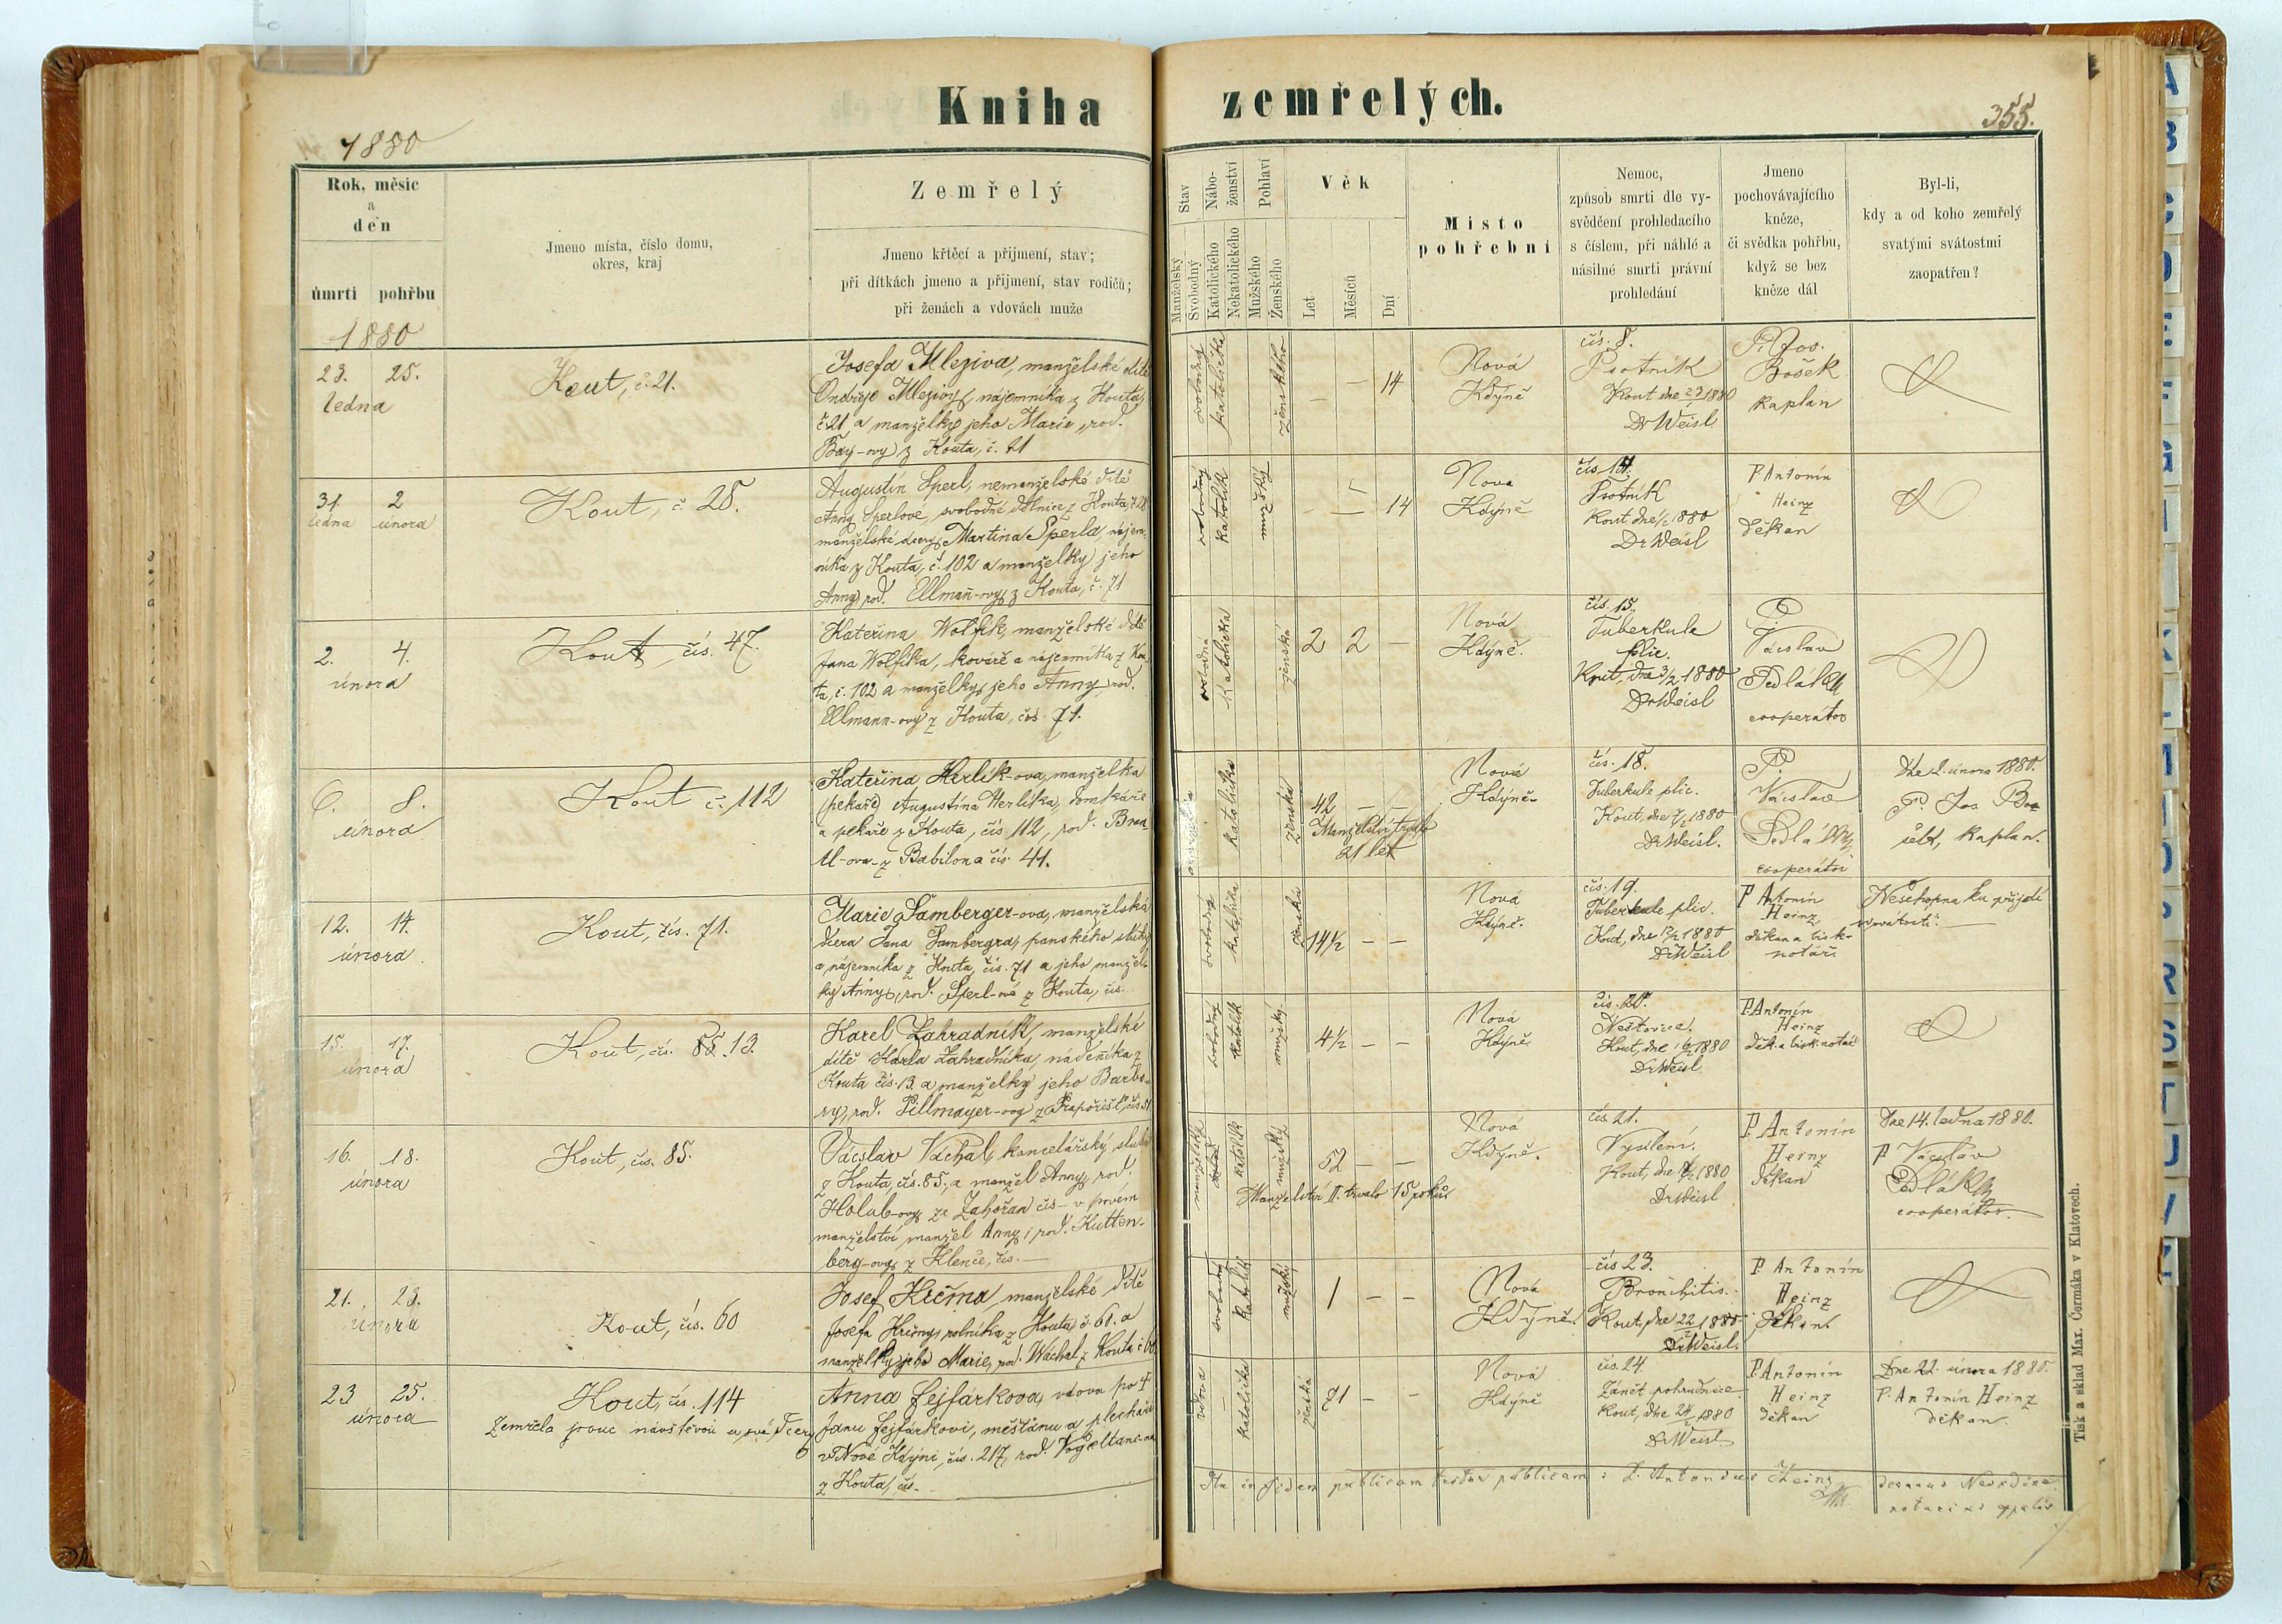 Kniha zemřelých.
1880
355.
Rok, měsíc
a
den
úmrtí pohřbu
Jmeno místa, číslo domu,
okres, kraj
Zemřelý
Jmeno křtěcí a přijmení, stav;
při dítkách jmeno a přijmení, stav rodičů;
při ženách a vdovách muže
Stav
Manželský
Svobodný
Nábo-
ženství
Katolického
Nekatolického
Pohlaví
Mužského
Ženského
Věk
Let
Měsíců
Dní
Místo
pohřební
Nemoc,
způsob smrti dle vy-
svědčení prohledacího
s číslem, při náhlé a
násilné smrti právní
prohledání
Jmeno
pochovávajícího
kněze,
či svědka pohřbu,
když se bez
kněze dál
Byl-li,
kdy a od koho zemřelý
svatými svátostmi
zaopatřen?
1880
23. 25.
ledna
Kout, č. 21.
Josefa Mleziva, manželské dítě
Ondřeje Mlezivy, nájemníka z Kouta,
č. 21 a manželky jeho Marie, rod.
Bay-ovy z Kouta, č. 21
svobodný
katolička
ženského
– – 14
Nová
Kdýně
čís. 8.
Psotník
Kout dne 23/1 1880
Dr Weisl
P. Jos.
Bošek
kaplan
31. 2
ledna února
Kout, č. 28.
Augustin Sperl, nemanželské dítě
Anny Sperlové, svobodné dělnice z Kouta, č. 28
manželské dcery Martina Sperla, nájem-
níka z Kouta, č. 102 a manželky jeho
Anny, rod. Ellmann-ovy z Kouta, č. 71
svobodný
katolík
mužský
– – 14
Nová
Kdýně
čís. 14.
Psotník
Kout dne 1/2 1880
Dr Weisl
P. Antonín
Heinz
děkan
2. 4.
února
Kout, čís. 47.
Kateřina Wolfík, manželské dítě
Jana Wolfíka, kováře a nájemníka z Kou-
ta, č. 102 a manželky jeho Anny, rod.
Ellmann-ovy z Kouta, čís. 71.
svobodná
katolička
ženská
2 2 –
Nová
Kdýně.
čís. 15.
Tuberkule
plic.
Kout, dne 3/2 1880
Dr Weisl
P.
Václav
Sedlák
cooperátor
6. 8.
února
Kout č. 112
Kateřina Herlík-ova, manželka
(pekaře) Augustína Herlíka, domkáře
a pekaře z Kouta, čís. 112, rod.
z Babilona čís. 41.
katolička
ženská
42 – –
Manželství trvalo
21 let
Nová
Kdýně.
čís. 18.
Tuberkule plic.
Kout, dne 7/2 1880
Dr Weisl.
P.
Václav
Sedlák
cooperátor
Dne 2. února 1880.
P. Jos Bo-
šek, kaplan.
12. 14.
února.
Kout, čís. 71.
Marie Samberger-ova, manželská
dcera Jana Sambergra, panského sluhy
a nájemníka z Kouta, čís. 71 a jeho manžel-
ky Anny, rod. Sperl-ové z Kouta, čís. –
svobodná
katolička
ženská
14½ – –
Nová
Kdýně.
čís. 19.
Tuberkule plic.
Kout, dne 13/2 1880
Dr Weisl
P. Antonín
Heinz
děkan a bisk-
notář.
Neschopna ku přijetí
svátostí. –
15. 17.
února
Kout, čís. 85. 13.
Karel Zahradník, manželské
dítě Karla Zahradníka, nádeníka z
Kouta čís. 13. a manželky jeho Barbo-
ry, rod. Pillmayer-ovy z Prapořišť, čís. 51.
svobodný
katolík
mužský
4½ – –
Nová
Kdýně.
čís. 20.
Neštovice.
Kout, dne 16/2 1880
Dr Weisl
P. Antonín
Heinz
děk. a bisk. notář
16. 18.
února
Kout, čís. 85.
Václav Váchal, kancelářský sluha
z Kouta, čís. 85., a manžel Anny, rod.
Holub-ovy ze Zahořan čís – v prvém
manželství manžel Anny, rod. Kutten-
berg-ovy z Klenče, čís. –
manželský
katolík
mužský
52 – –
Manželství II. trvalo 15 roků.
Nová
Kdýně.
čís. 21.
Vysílení.
Kout, dne 17/2 1880
Dr Weisl
P. Antonín
Heinz
děkan
Dne 14. ledna 1880.
P. Václav
Sedlák
cooperátor.
21. 23.
února
Kout, čís. 60
Josef Krčma, manželské dítě
Josefa Krčmy, rolníka z Kouta, č. 61. a
manželky jeho Marie, rod. Wáchal z Kouta č. 60
svobodný
katolík
mužský
1 – –
Nová
Kdýně.
čís 23.
Bronchitis.
Kout, dne 22/2 1880
Dr Weisl.
P. Antonín
Heinz
děkan.
23 25.
února
Kout, čís. 114
Zemřela jsouc návštěvou u své dcery
Anna Fejfárkova, vdova po †
Janu Fejfárkovi, měšťanu a plecháři
v Nové Kdýni, čís. 217, rod. Vogeltanc-
z Kouta, čís –
vdova
katolička
ženská
71 – –
Nová
Kdýně
čís. 24
Zánět pohrudnice.
Kout, dne 24/2 1880
Dr Weisl
P. Antonín
Heinz
děkan
Dne 22. února 1880.
P. Antonín Heinz
děkan.
Ita in fidem publicam testor publicam: P. Antonius Heinz
Tisk a sklad Max. Čermáka v Klatovech.